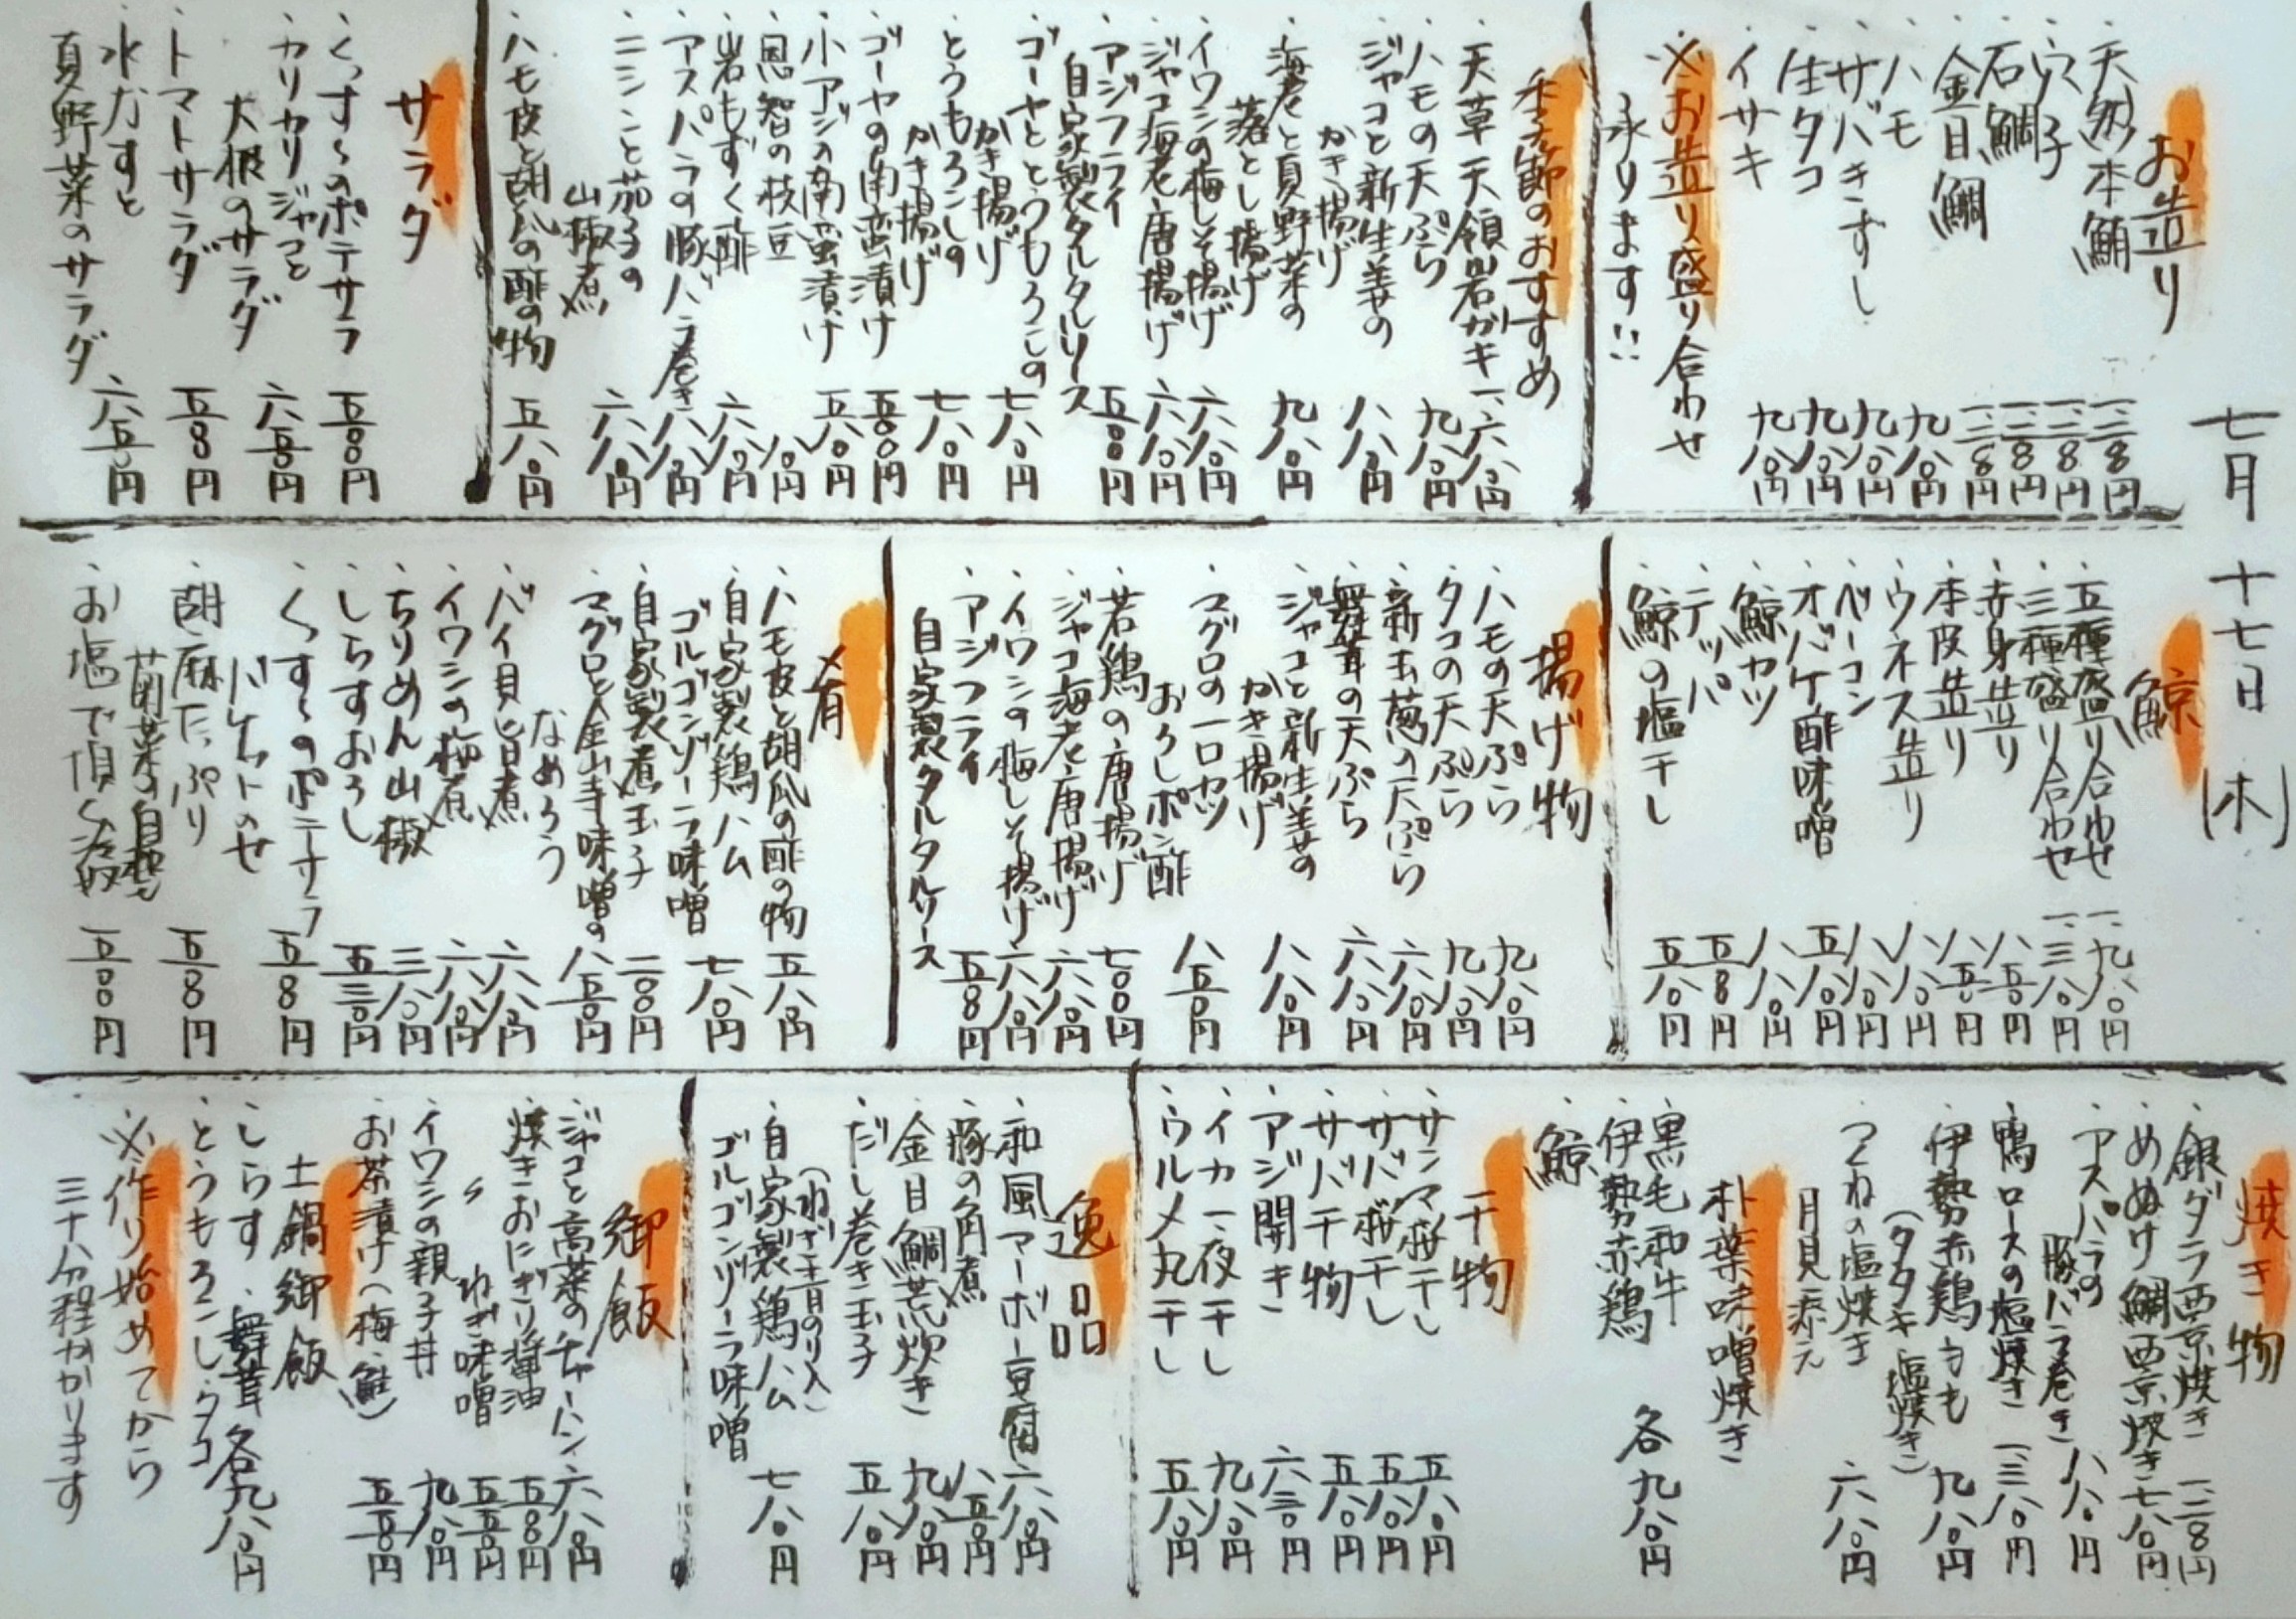 七月十七日(木)
お造り
・天然本鮪 一二八〇円
・穴子 一二八〇円
・石鯛 一二八〇円
・金目鯛 一二八〇円
・ハモ 九八〇円
・サバきずし 九八〇円
・生タコ 九八〇円
・イサキ 九八〇円
※お造り盛り合わせ
承ります!!
季節のおすすめ
・天草 天領岩ガキ 一、六八〇円
・ハモの天ぷら 九八〇円
・ジャコと新生姜の
かき揚げ 八八〇円
・海老と夏野菜の
落とし揚げ 九八〇円
・イワシの梅しそ揚げ 六八〇円
・ジャコ海老唐揚げ 六八〇円
・アジフライ
自家製タルタルソース 五八〇円
・ゴーヤととうもろこしの
かき揚げ 七八〇円
・とうもろこしの
かき揚げ 七八〇円
・ゴーヤの南蛮漬け 五八〇円
・小アジの南蛮漬け 五八〇円
・恩智の枝豆
・岩もずく酢 六八〇円
・アスパラの豚バラ巻き 八八〇円
・ニシンと茄子の
山椒煮 六八〇円
・ハモ皮と胡瓜の酢の物 五八〇円
サラダ
・くっすぅのポテサラ 五八〇円
・カリカリジャコと
大根のサラダ 六五〇円
・トマトサラダ 五八〇円
・水なすと
夏野菜のサラダ 六五〇円
鯨
・五種盛り合わせ 一、九八〇円
・三種盛り合わせ 一、三八〇円
・赤身造り 八五〇円
・本皮造り 八五〇円
・ウネス造り 八八〇円
・ベーコン 八八〇円
・オバケ酢味噌 五八〇円
・鯨カツ 八八〇円
・テッパ 五八〇円
・鯨の塩干し 五八〇円
揚げ物
・ハモの天ぷら 九八〇円
・タコの天ぷら 九八〇円
・新玉葱の天ぷら 六八〇円
・舞茸の天ぷら 六八〇円
・ジャコと新生姜の
かき揚げ 八八〇円
・マグロの一口カツ
おろしポン酢 八五〇円
・若鶏の唐揚げ 七〇〇円
・ジャコ海老唐揚げ 六八〇円
・イワシの梅しそ揚げ 六八〇円
・アジフライ
自家製タルタルソース 五八〇円
肴
・ハモ皮と胡瓜の酢の物 五八〇円
・自家製鶏ハム
ゴルゴンゾーラ味噌 七八〇円
・自家製煮玉子 二〇〇円
・マグロと金山寺味噌の
なめろう 八五〇円
・バイ貝旨煮 六八〇円
・イワシの梅煮 六八〇円
・ちりめん山椒 三八〇円
・しらすおろし 五三〇円
・くっすぅのポテサラ
バケットのせ 五八〇円
・胡麻たっぷり
菊菜のお浸し 五八〇円
・お塩で頂く冷奴 五〇〇円
焼き物
・銀ダラ西京焼き 一二八〇円
・めぬけ鯛西京焼き 七八〇円
・アスパラの
豚バラ巻き 八八〇円
・鴨ロースの塩焼き 一、三八〇円
・伊勢赤鶏もも
(タタキ・塩焼き) 九八〇円
・つくねの塩焼き
月見添え 六八〇円
朴葉味噌焼き
・黒毛和牛
・伊勢赤鶏
・鯨
各九八〇円
干物
・サンマ桜干し 五八〇円
・サバ桜干し 五八〇円
・サバ干物 五八〇円
・アジ開き 六三〇円
・イカ一夜干し 九八〇円
・ウルメ丸干し 五八〇円
逸品
・和風マーボー豆腐 六八〇円
・豚の角煮 八五〇円
・金目鯛荒炊き 九八〇円
・だし巻き玉子
(ねぎ・青のり入) 五八〇円
・自家製鶏ハム
ゴルゴンゾーラ味噌 七八〇円
御飯
・ジャコと高菜のチャーハン 六八〇円
・焼きおにぎり醤油 五八〇円
・〃 ねぎ味噌 五五〇円
・イワシの親子丼 九八〇円
・お茶漬け(梅・鮭) 五五〇円
土鍋御飯
・しらす・舞茸
・とうもろこし・タコ 各九八〇円
※作り始めてから
三十八分程かかります